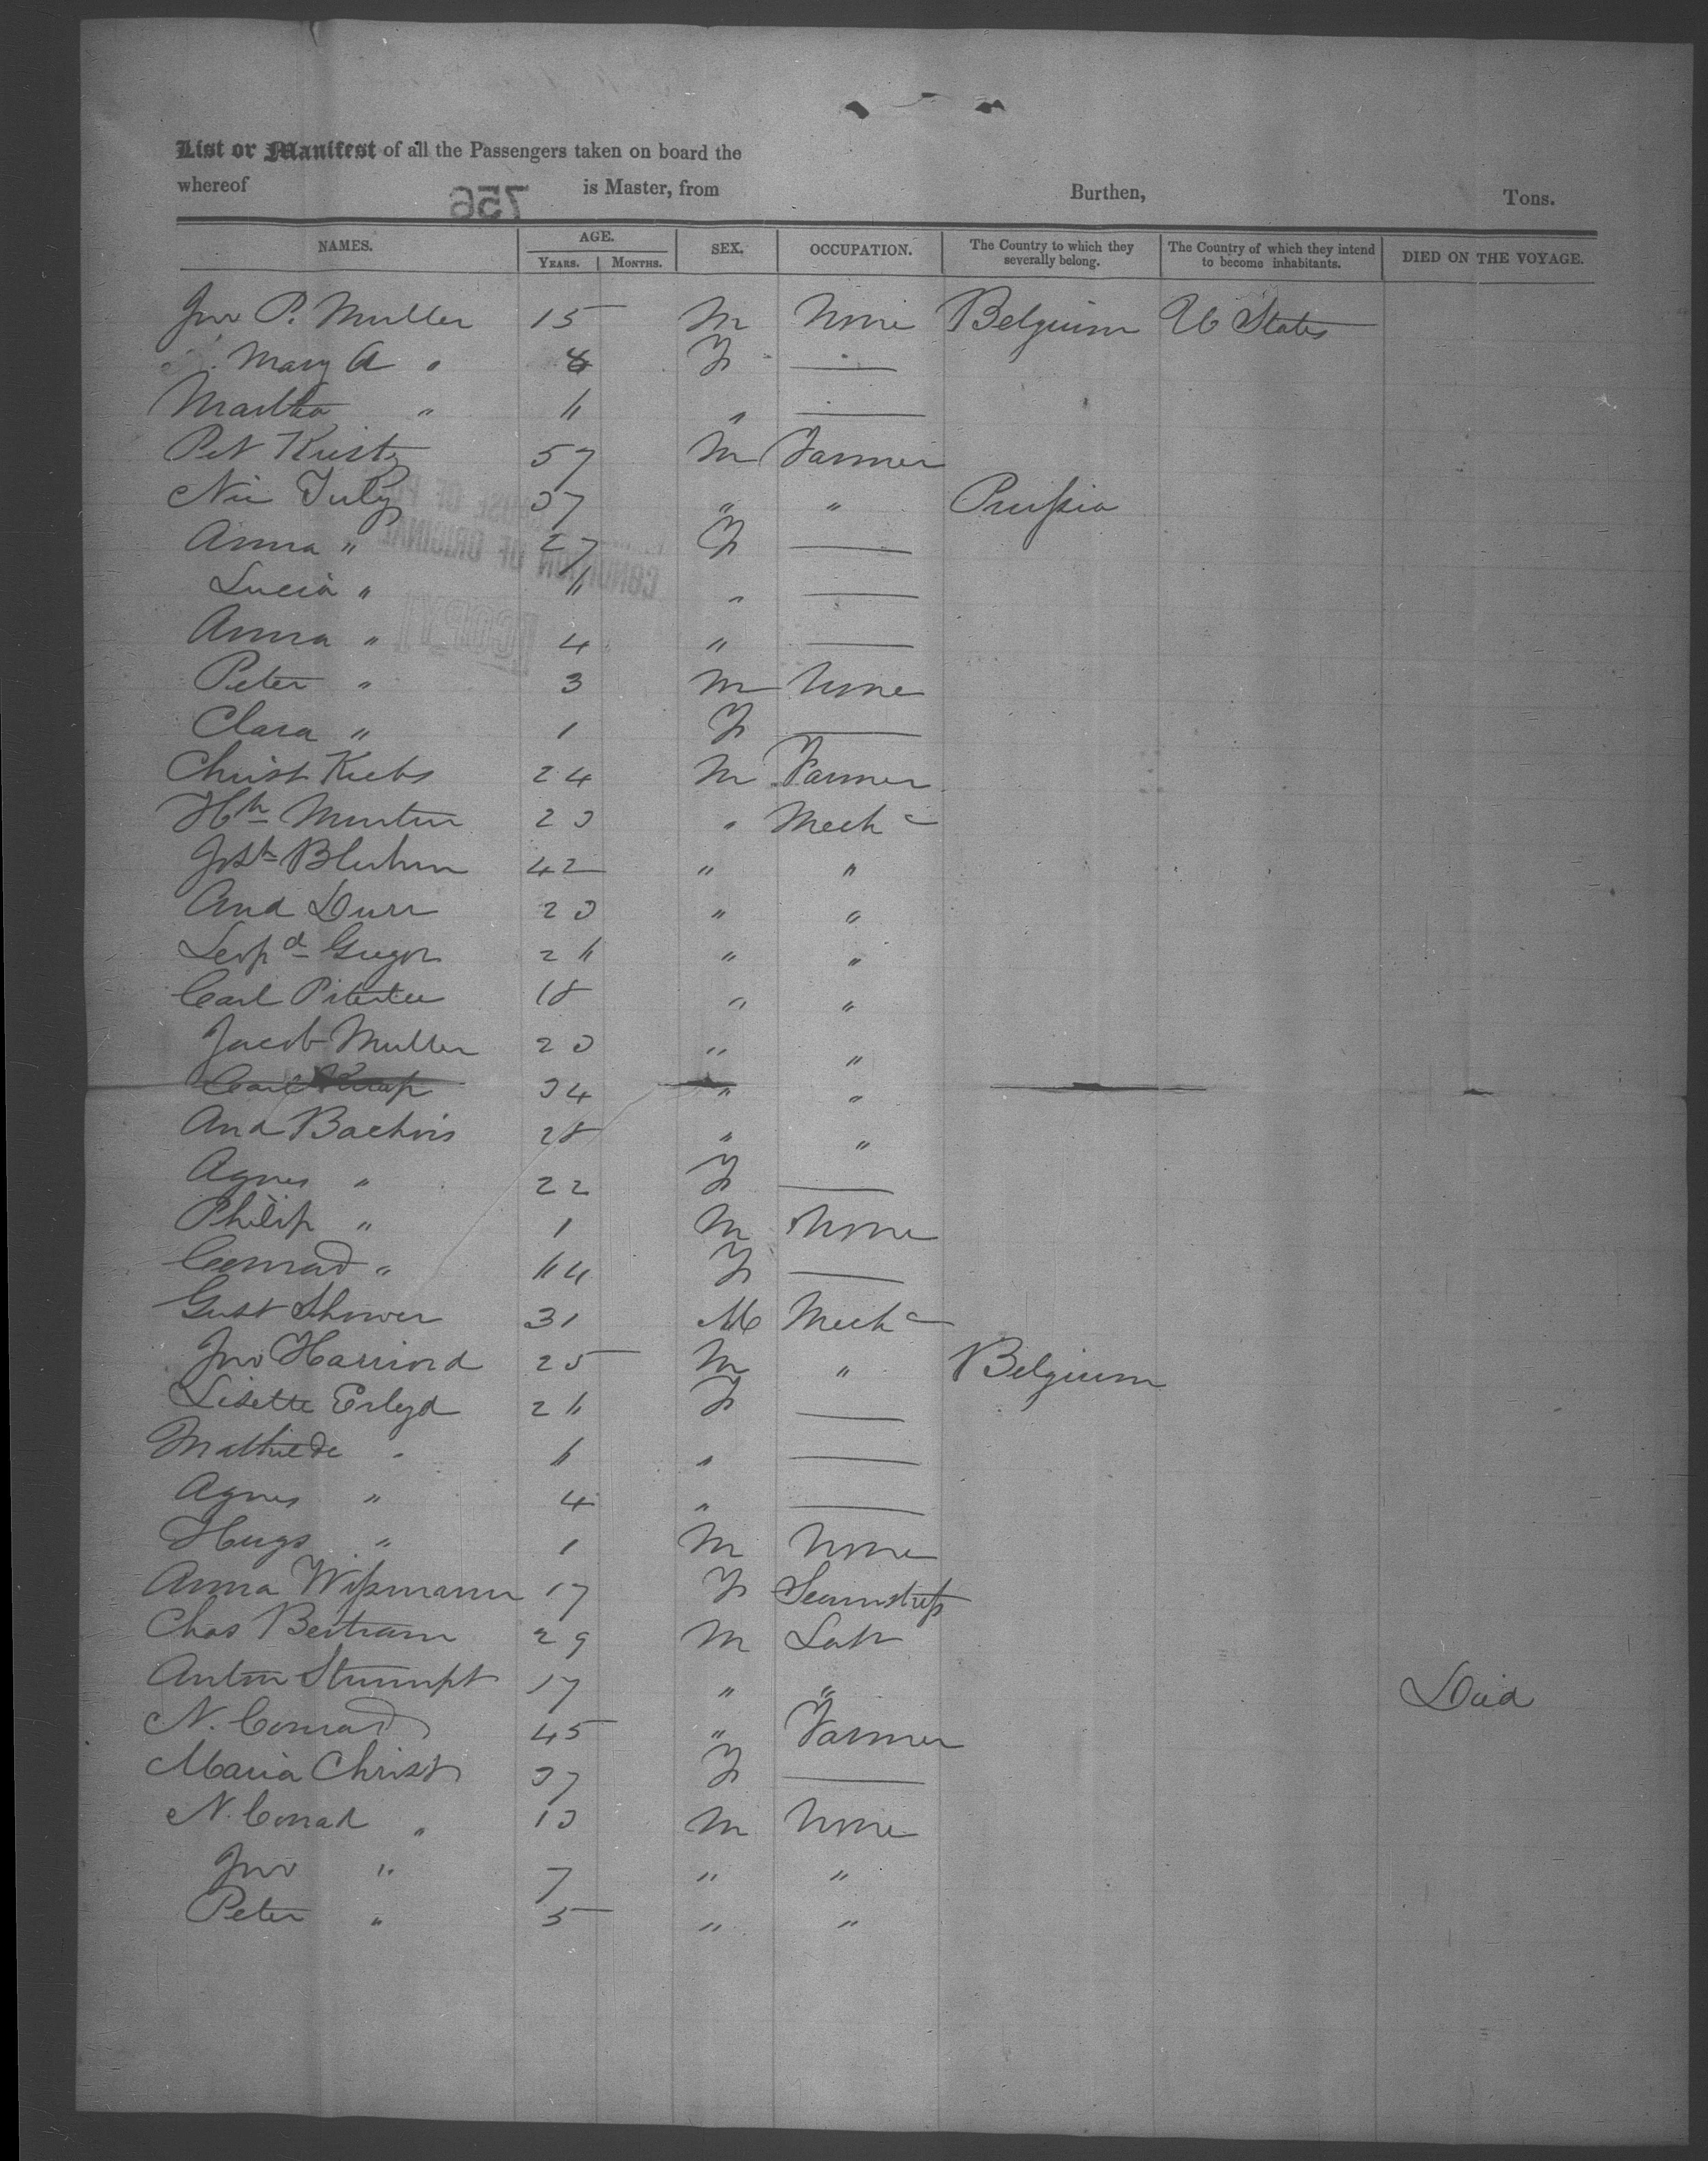 List or Manifest of all the Passengers taken on board the
whereof is Master, from Burthen, Tons.
756
NAMES. AGE. SEX. OCCUPATION. The Country to which they severally belong. The Country of which they intend to become inhabitants. DIED ON THE VOYAGE.
YEARS. MONTHS.
Jno P. Muller 15 M None Belgium U States
Mary A " 8 F —
Martha " 11 " —
Pet 57 M Farmer
37 " " Prussia
Anna " 27 F —
Lucia " 11 " —
Anna " 4 " —
Peter " 3 M None
Clara " 1 F —
Christ Krebs 24 M Farmer
23 " Mechc
Bluhm 42 " "
And Durr 23 " "
Leopd Gregor " "
Carl 18 " "
Jacob Muller 23 " "
Carl 34 " "
And 28 " "
Agnes " 22 F —
Philip " 1 M None
Conrad " F —
Gust 31 M Mechc
Jno 25 M " Belgium
Lisette F —
Mathilde " " —
Agnes " 4 " —
Hugo " 1 M None
Anna Wissmann 17 F Seamstress
Chas Bertram 29 M Labr
Anton Stumpt 17 " " Died
N. Conrad 45 " Farmer
Maria Christ 37 F —
N. Conrad " 13 M None
Jno " 7 " "
Peter " 5 " "